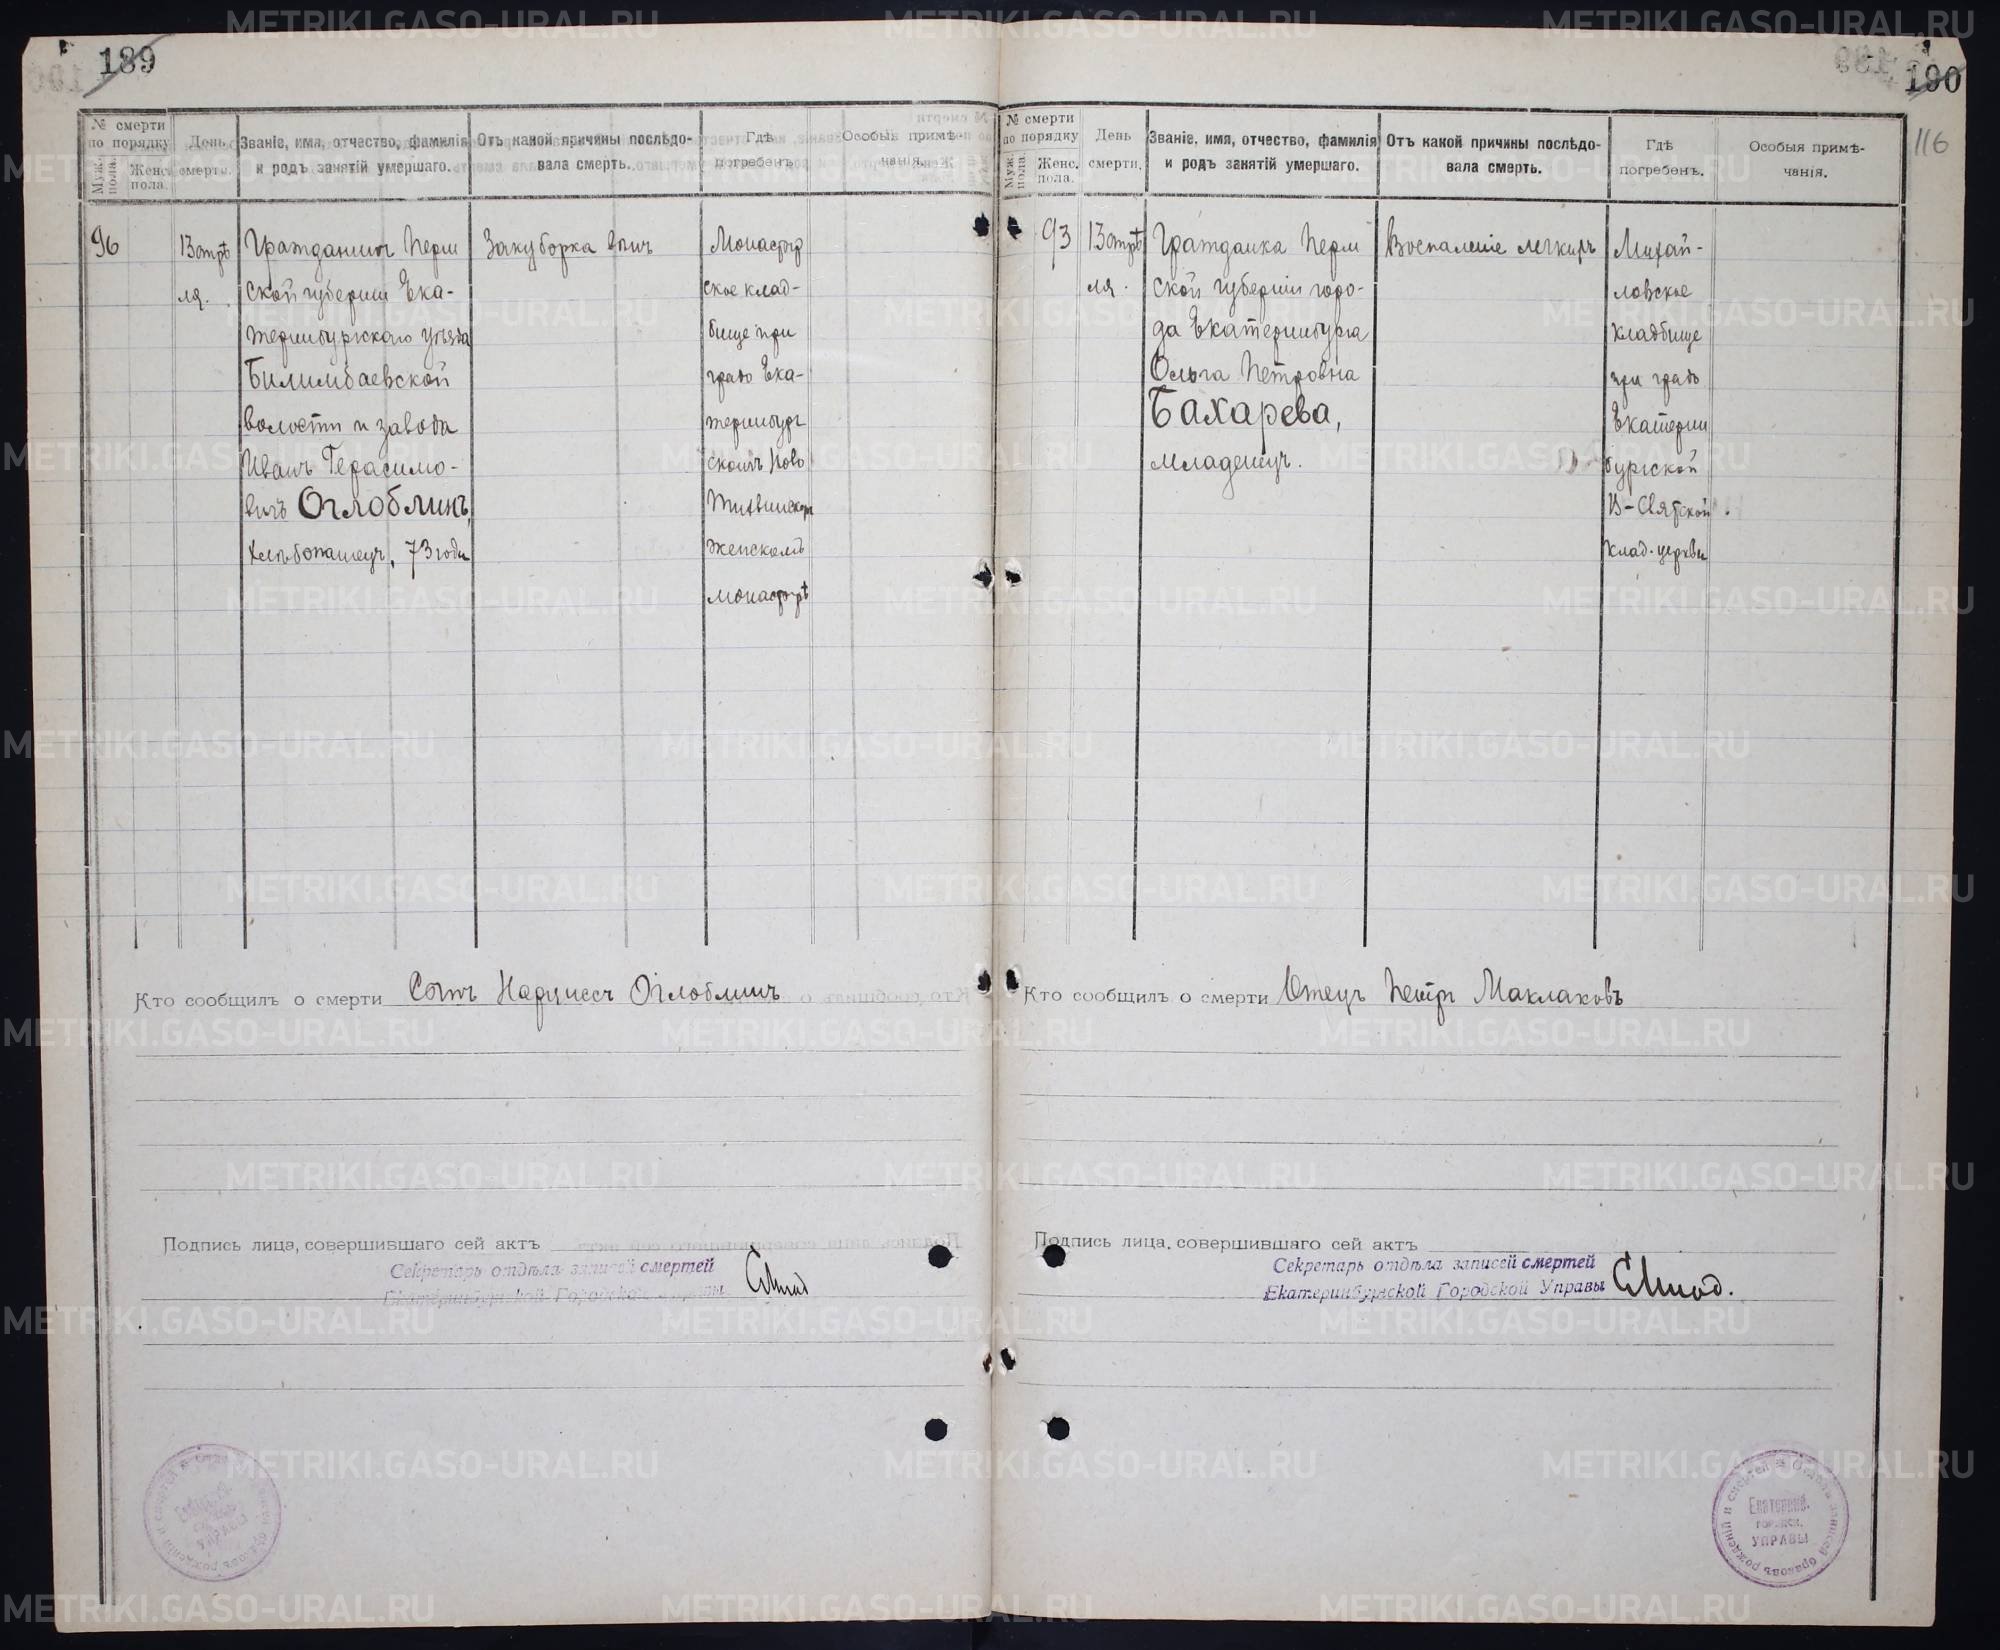 189
№ смерти по порядку
Муж. пола.
Женс. пола.
День смерти.
Званіе, имя, отчество, фамилія и родъ занятій умершаго.
Отъ какой причины послѣдовала смерть.
Гдѣ погребенъ.
Особыя примѣчанія.
96
13 апрѣ
ля.
Гражданинъ Перм
ской губерніи Ека-
теринбургскаго уѣзда
Билимбаевской
волости и завода
Иванъ Герасимо-
вичъ Оглоблинъ,
хлѣбопашецъ, 73 года
Закупорка венъ
Монастыр
ское клад-
бище при
градо Ека-
теринбург
скомъ Ново
Тихвинском
женскомъ
монастырѣ
Кто сообщилъ о смерти Сынъ Нарциссъ Оглоблинъ
Подпись лица, совершившаго сей актъ
Секретарь отдѣла записей смертей
Екатеринбургской Городской Управы
190
116
№ смерти по порядку
Муж. пола.
Женс. пола.
День смерти.
Званіе, имя, отчество, фамилія и родъ занятій умершаго.
Отъ какой причины послѣдовала смерть.
Гдѣ погребенъ.
Особыя примѣчанія.
93
13 апрѣ
ля.
Гражданка Перм
ской губерніи горо-
да Екатеринбурга
Ольга Петровна
Бахарева,
младенецъ.
Воспаленіе легкихъ
Михай-
ловское
кладбище
при градо
Екатерин
бургской
В-Святской
клад. церкви
Кто сообщилъ о смерти Отецъ Петръ Маклаковъ
Подпись лица, совершившаго сей актъ
Секретарь отдѣла записей смертей
Екатеринбургской Городской Управы
Екатеринб.
ГОРОДСК.
УПРАВЫ
METRIKI.GASO-URAL.RU